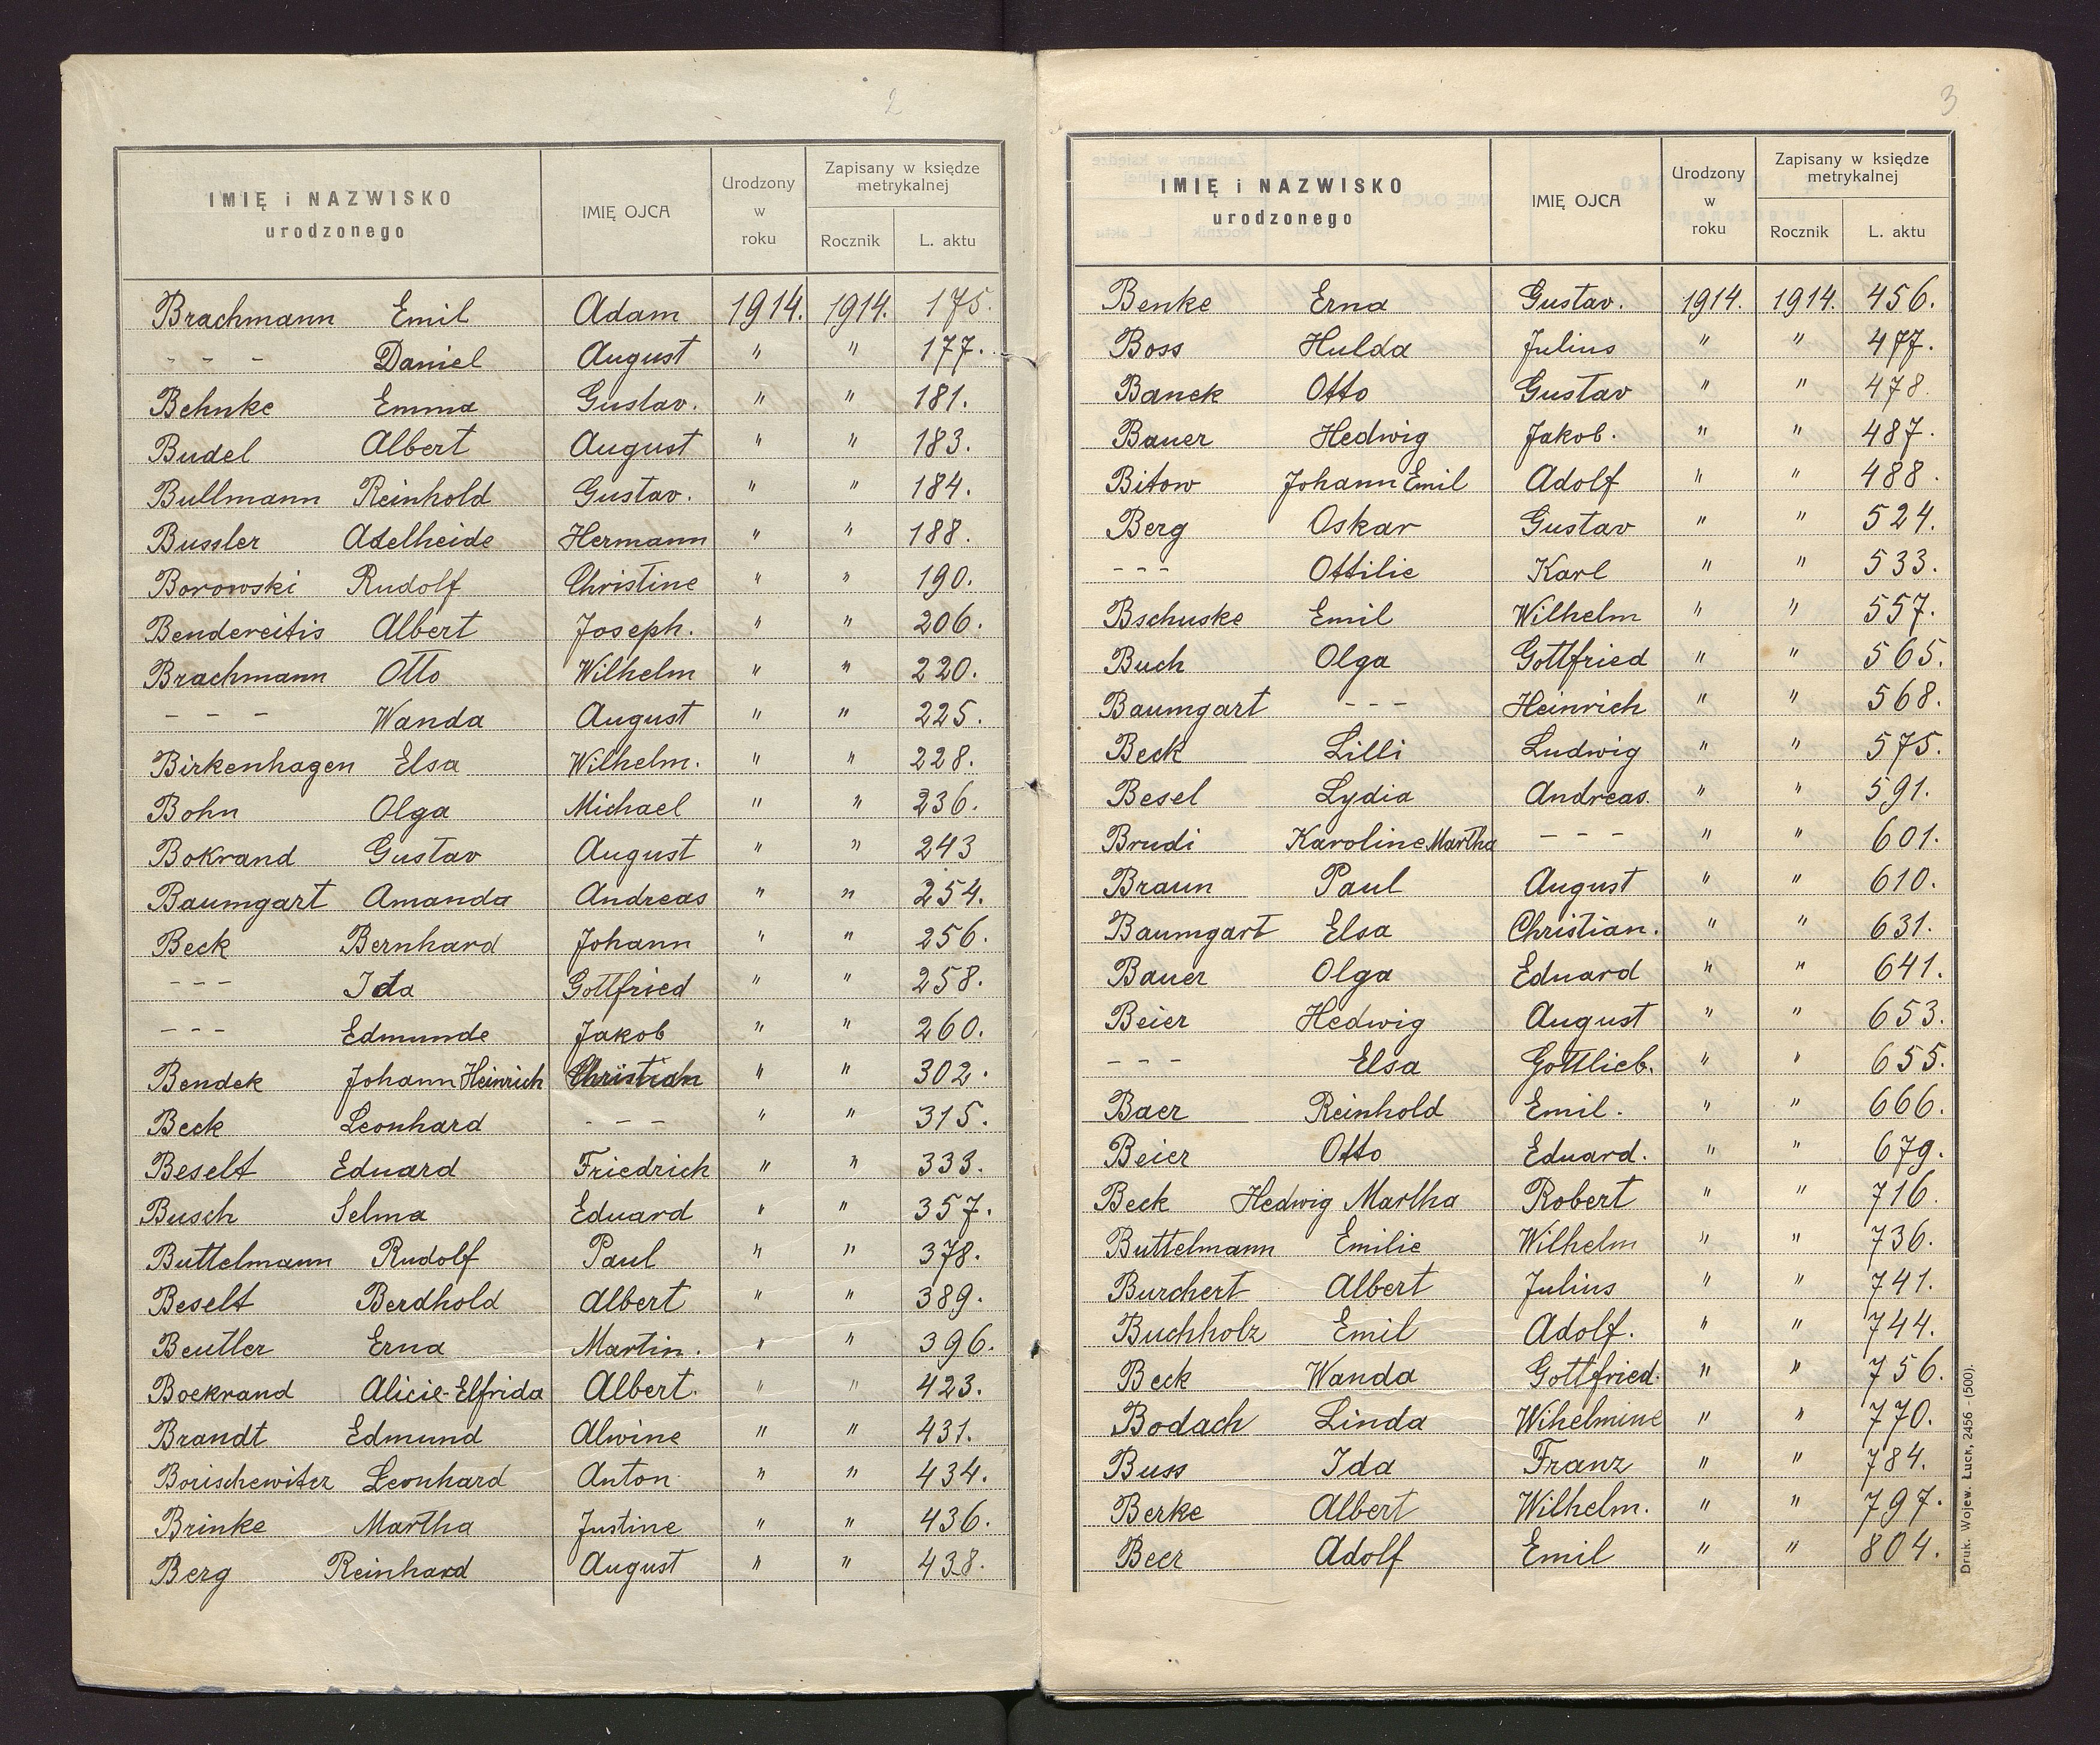 2
IMIĘ i NAZWISKO
urodzonego
IMIĘ OJCA
Urodzony
w
roku
Zapisany w księdze
metrykalnej
Rocznik
L. aktu
Brachmann Emil Adam 1914. 1914. 175.
- - - Daniel August " " 177.
Behnke Emma Gustav. " " 181.
Budel Albert August " " 183.
Bullmann Reinhold Gustav. " " 184.
Bussler Adelheide Hermann " " 188.
Borowski Rudolf Christine " " 190.
Bendereitis Albert Joseph. " " 206.
Brachmann Otto Wilhelm " " 220.
- - - Wanda August " " 225.
Birkenhagen Elsa Wilhelm. " " 228.
Bohn Olga Michael " " 236.
Bokrand Gustav August " " 243
Baumgart Amanda Andreas " " 254.
Beck Bernhard Johann " " 256.
- - - Ida Gottfried " " 258.
- - - Edmunde Jakob " " 260.
Bendek Johann Heinrich Christian " " 302.
Beck Leonhard - - - " " 315.
Beselt Eduard Friedrich " " 333.
Busch Selma Eduard " " 357.
Buttelmann Rudolf Paul " " 378.
Beselt Berdhold Albert " " 389.
Beutler Erna Martin. " " 396.
Boekrand Alicie-Elfrida Albert. " " 423.
Brandt Edmund Alwine " " 431.
Borischewitz Leonhard Anton " " 434.
Brinke Martha Justine " " 436.
Berg Reinhard August " " 438.
3
IMIĘ i NAZWISKO
urodzonego
IMIĘ OJCA
Urodzony
w
roku
Zapisany w księdze
metrykalnej
Rocznik
L. aktu
Benke Erna Gustav. 1914. 1914. 456.
Boss Hulda Julius " " 477.
Banek Otto Gustav " " 478.
Bauer Hedwig Jakob. " " 487.
Bitow Johann Emil Adolf " " 488.
Berg Oskar Gustav " " 524.
- - - Ottilie Karl " " 533.
Bschuske Emil Wilhelm " " 557.
Buch Olga Gottfried " " 565.
Baumgart - - - Heinrich " " 568.
Beck Lilli Ludwig " " 575.
Besel Lydia Andreas. " " 591.
Brudi Karoline Martha - - - " " 601.
Braun Paul August " " 610.
Baumgart Elsa Christian. " " 631.
Bauer Olga Eduard " " 641.
Beier Hedwig August " " 653.
- - - Elsa Gottlieb. " " 655.
Baer Reinhold Emil. " " 666.
Beier Otto Eduard. " " 679.
Beck Hedwig Martha Robert " " 716.
Buttelmann Emilie Wilhelm " " 736.
Burchert Albert Julius " " 741.
Buchholz Emil Adolf. " " 744.
Beck Wanda Gottfried. " " 756.
Bodach Linda Wihelmine " " 770.
Buss Ida Franz " " 784.
Berke Albert Wilhelm. " " 797.
Beer Adolf Emil " " 804.
Druk. Wojew. Łuck, 2456 - (500).